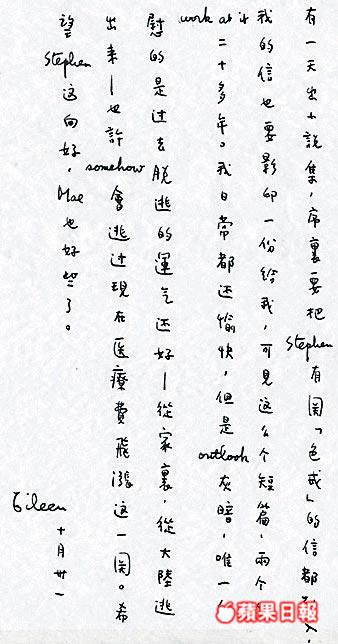 有一天出小說集，序裏要把Stephen有関「色戒」的信都入，
我的信也要影印一份給我，可見这么个短篇，兩个
work at it二十多年。我日常都还愉快，但是outlook灰暗，唯一
慰的是过去脱逃的運气还好—從家裏，從大陸逃
出来—也許somehow會逃过現在医療費飛漲这一関。希
望Stephen这向好，Mae也好些了。
Eileen 十月卅一
蘋果日報